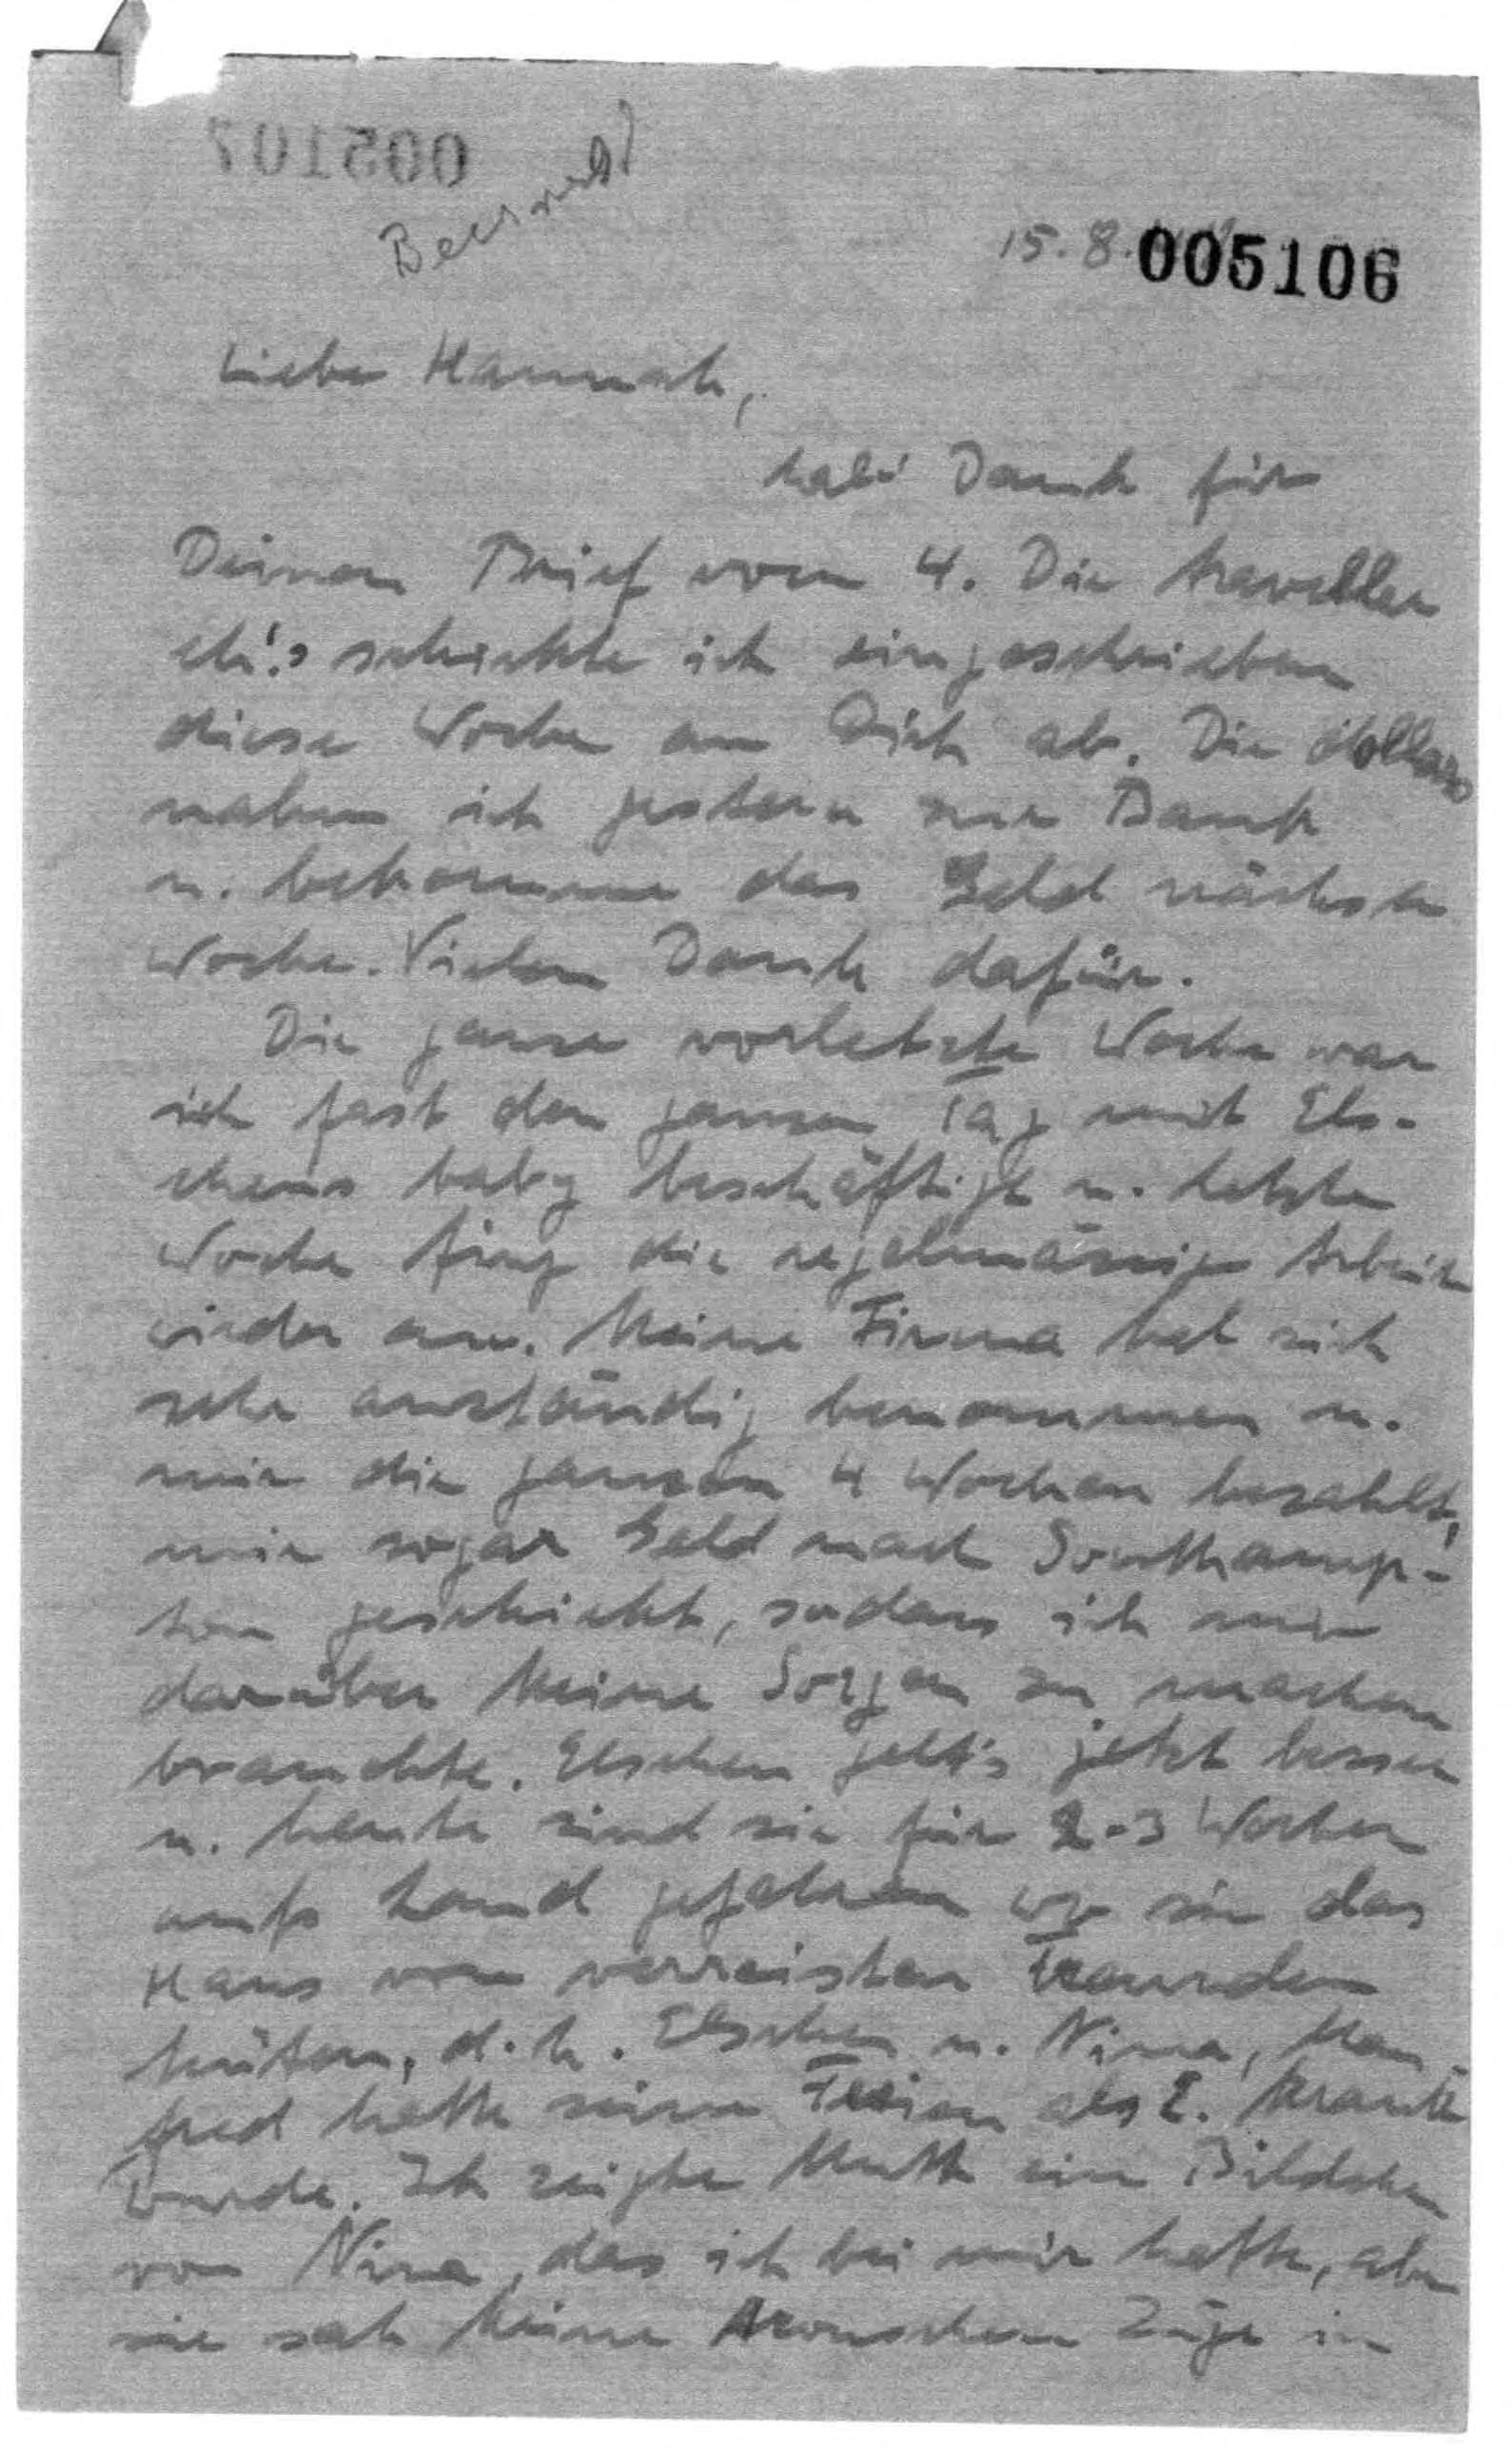 005107
15.8. 005106
Liebe Hannah,
hab' Dank für
Deinen Brief vom 4. Die traveller
ch.'s schickte ich eingeschrieben
diese Woche an Dich ab. Die dollars
nahm ich gestern zur Bank
u. bekomme das Geld nächste
Woche. Vielen Dank dafür.
Die ganze vorletzte Woche war
ich fast den ganzen Tag mit Els-
chens baby beschäftigt u. letzte
Woche fing die regelmässige Arbeit
wieder an. Meine Firma hat sich
sehr anständig benommen u.
mir die ganzen 4 Wochen bezahlt,
mir sogar Geld nach Southamp-
ton geschickt, sodass ich mir
darüber keine Sorgen zu machen
brauchte. Elschen geht's jetzt besser
u. heute sind sie für 2-3 Wochen
aufs Land gefahren wo sie das
Haus von verreisten Freunden
hüten, d.h. Elschen u. Nina, Man-
fred hatte seine Ferien als E. krank
wurde. Ich zeigte Mutt ein Bildchen
von Nina, das ich bei mir hatte, aber
sie sah keine Aronschen Züge in